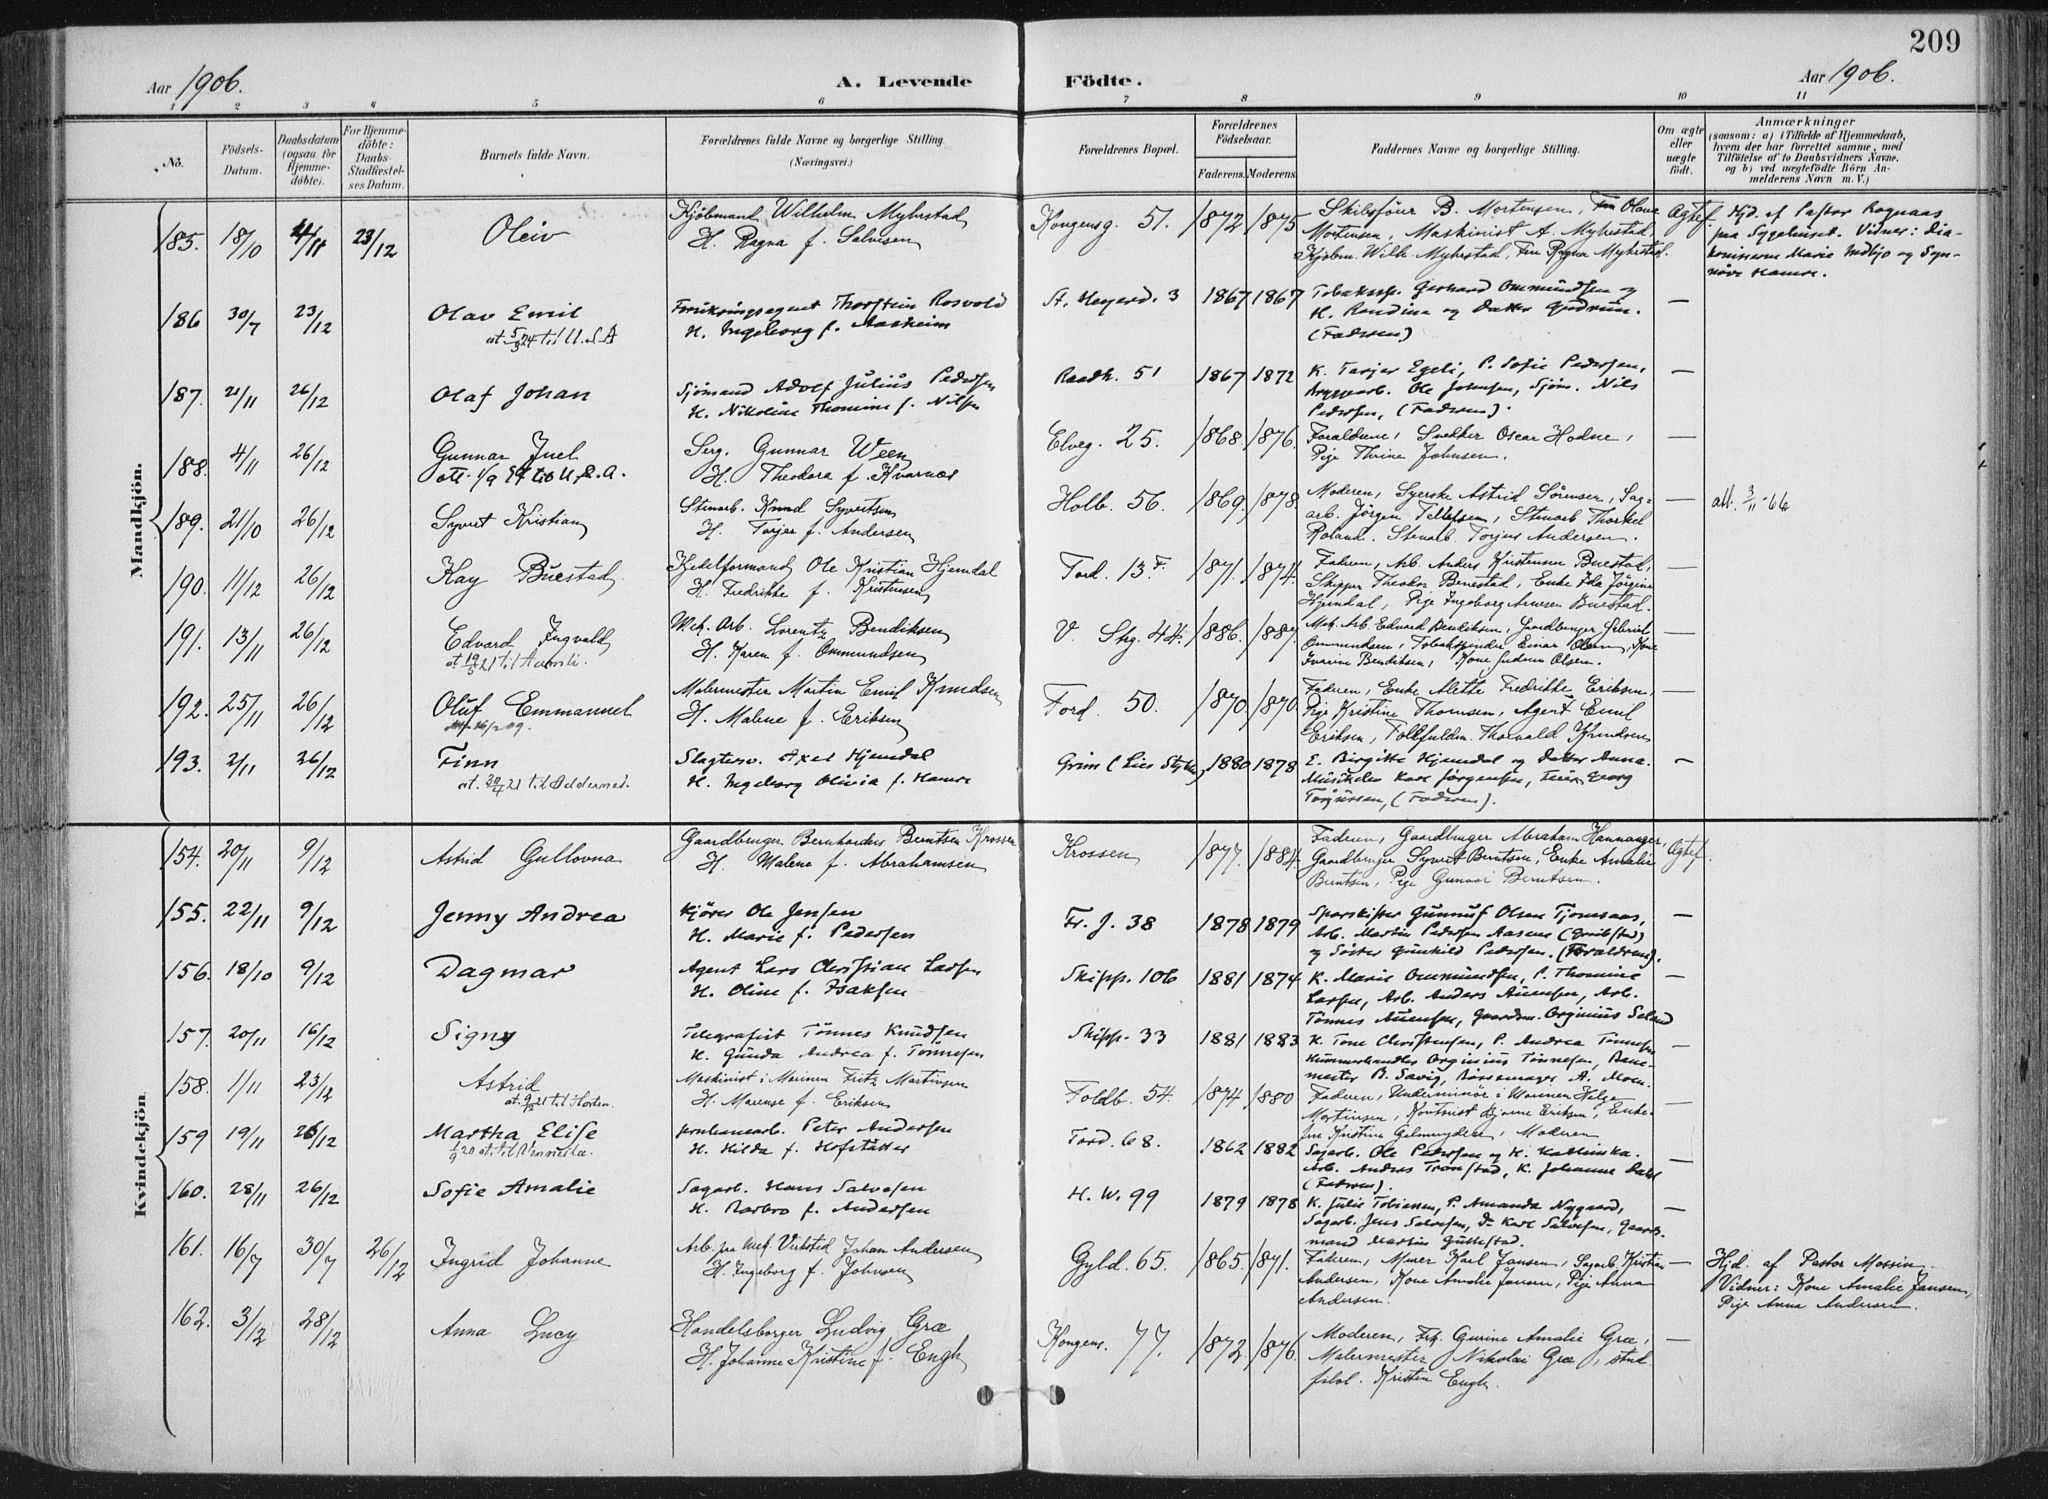 209
Aar 1906. A. Levende Födte. Aar 1906.
1 2 3 4 5 6 7 8 9 10 11
No.
Födsels-Datum.
Daabsdatum (ogsaa for Hjemme-döbte).
For Hjemme-döbte: Daabs-Stadfæstel-ses Datum.
Barnets fulde Navn.
Forældrenes fulde Navne og borgerlige Stilling.
(Næringsvei.)
Forældrenes Bopæl.
Forældrenes Födselsaar.
Faderens. Moderens.
Faddernes Navne og borgerlige Stilling.
Om ægte eller uægte födt.
Anmærkninger
(saasom: a) i Tilfælde af Hjemmedaab, hvem der har forrettet samme, med Tilföielse af to Daabsvidners Navne, og b) ved uægtefödte Börn An-melderens Navn m. V.)
Mandkjön.
185. 18/10 4/11 23/12 Oleiv
Kjöbmand Wilhelm Myhrstad
H. Ragna f. Salvesen
Kongensg. 51. 1872 1875
Skibsförer B. Mortensen, Olava
Mortensen, Maskinist A. Myhrstad,
Kjöbm. Wilh. Myhrstad, Fru Ragna Myhrstad.
Ægtef.
Hjd. af Pastor Rognaas
paa Sygehuset. Vidner: Dia-
konisserne Marie Midbjo og Syn-
növe Hamre.
186 30/7 23/12 Olav Emil
at. 5/3 24 til U.S.A
Forsikringsagent Thorstein Rosvold
H. Ingeborg f. Aasheim
St. Heyerd. 3 1867 1867
Tobakssp. Gerhard Ommundsen og
H. Randine og Datter Gudrun.
(Faderen)
—
187. 2/11 26/12 Olaf Johan
Sjömand Adolf Julius Pedersen
H. Nikoline Thomine f. Nilsen
Raadh. 51 1867 1872
K. Tarjer Egeli, P. Sofie Pedersen,
Bryggearb. Ole Johnsen, Sjöm. Nils
Pedersen, (Faderen).
—
188. 4/11 26/12 Gunnar Juel
att. 1/9 54 til U.S.A.
Serg. Gunnar Ween
H. Theodora f. Kvarnæs
Elveg. 25. 1868. 1876.
Forældrene, Snekker Oscar Hodne,
Pige Thrine Johnsen.
—
189. 21/10 26/12 Syvert Kristian
Stenarb. Knud Syvertsen
H. Torjer f. Andersen
Holb. 56. 1869. 1878.
Moderen, Syerske Astrid Sörensen, Sag-
arb. Jörgen Tellefsen, Stenarb Thorkel
Roland. Stenarb Torjus Andersen.
—
att. 3/11-66
190. 11/12 26/12 Kay Buestad
Kjedelformand Ole Kristian Hjemdal
H. Fredrikke f. Kristensen
Tord. 13 F. 1871. 1874.
Faderen, Arb. Anders Kristensen Buestad,
Skipper Theodor Benestad, Enke Ida Jörgine
Hjemdal, Pige Ingeborg Buestad.
—
191. 13/11 26/12 Edvard Ingvald
Mek. Arb. Lorentz Bendiksen
H. Karen f. Ommundsen
V. Stg. 44. 1886. 1887.
Mek. Arb. Edvard Bendiksen, Gaardbruger Gabriel
Ommundsen, Tobakspinder Einar Olsen, Kone
Bendiksen, Kone Gudrun Olsen.
—
192. 25/11 26/12 Oluf Emmanuel
Malermester Martin Emil Knudsen
H. Malene f. Eriksen
Tord. 50. 1870. 1870.
Faderen, Enke Alette Fredrikke Eriksen,
Pige Kristine Thomsen, Agent Emil
Eriksen, Toldfuldm. Thorvald Knudsen
—
193. 2/11 26/12 Finn
at. 30/4 21 til Oddernes.
Slagtersv. Axel Hjemdal
H. Ingeborg Olivia f. Hamre
Grim 1880 1878
E. Birgitte Hjemdal og Datter Anna.
Musikeler Karl Jörgensen, Georg
Torjussen, (Faderen).
—
Kvindekjön
154. 20/11 9/12 Astrid Gullovna
Gaardbruger Bernhardus Berntsen Krossen
H. Malene f. Abrahamsen
Krossen 1877. 1884.
Faderen, Gaardbruger Abraham Hannanger,
Gaardbruger Syvert Berntsen, Enke Amalie
Berntsen, Pige Gunvor Berntsen.
Ægtef.
155. 22/11 9/12 Jenny Andrea
Kjörer Ole Jensen
H. Marie f. Pedersen
Fr. J. 38 1878 1879
Gunnuf Olsen Tjomsaas,
Arb. Martin Pedersen Aasene (Grebstad)
og Söster Gunhild Pedersen. (Forældrene).
—
156. 18/10 9/12 Dagmar
Agent Lars Christian Larsen
H. Oline f. Isaksen
Skipp. 106 1881 1874
K. Marie Ommundsen, P. Thomine
Larsen, Arb. Anders Auensen, Arb.
Tönnes Auensen, Gaardm. Orginius Seland
—
157. 20/11 16/12 Signy
Telegrafist Tönnes Knudsen
H. Gunda Andrea f. Tönnesen
Skipp. 33 1881 1883
K. Tone Christensen, P. Andrea Tönnesen
Hummerhandler Orginius Tönnesen, Bane-
mester B. Savig, Bössemager A. Moen.
—
158. 1/11 23/12 Astrid
at. 9/2 21 til Horten.
Maskinist i Marinen Fritz Martinsen
H. Marense f. Eriksen
Holb. 54. 1874 1880
Faderen, Underminör i Marinen Helge
Martinsen, Kontorist Bjarne Eriksen, Enke-
fru Kristine Gilmuyden, Moderen
—
159 19/11 26/12 Martha Elise
1/9 20 at. til Vennesla.
Jernbanearb. Peter Andersen
H. Hilda f. Hofstätter
Tord. 68. 1862 1882
Sagarb. Ole Pedersen og H. Kathinka.
Arb. Anders Tronstad, K. Johanne Dahl
(Faderen).
—
160. 28/11 26/12 Sofie Amalie
Sagarb. Hans Salvesen
H. Barbro f. Andersen
H. W. 99 1879 1878
K. Julie Tobiassen, P. Amanda Nygaard,
Sagarb. Jens Salvesen, Do Karl Salvesen, Gaard-
mand Martin Gullestad.
—
161. 16/7 30/7 26/12 Ingrid Johanne
Arb. paa Mek. Verksted Johan Andersen
H. Ingeborg f. Johnsen
Gyld. 65. 1865. 1871.
Faderen, Murer Karl Jansen, Sagarb. Kristian
Andersen, Kone Amalie Jansen, Pige Anna
Andersen.
—
Hjd. af Pastor Mossin.
Vidner: Kone Amalie Jansen,
Pige Anna Andersen.
162. 3/12 28/12 Anna Lucy
Handelsborger Ludvig Græ
H. Johanne Kristine f. Engh
Kongens. 77. 1872 1876.
Moderen, Frk. Gurine Amalie Græ,
Malermester Nikolai Græ, stud.
filol. Kristen Engh.
—